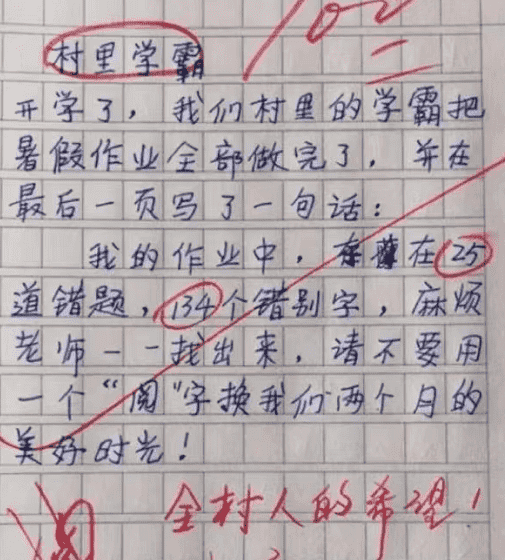 100
村里学霸
开学了，我们村里的学霸把
暑假作业全部做完了，并在
最后一页写了一句话：
我的作业中，存在25
道错题，134个错别字，麻烦
老师一一找出来，请不要用
一个“阅”字换我们两个月的
美好时光！
全村人的希望！
阅